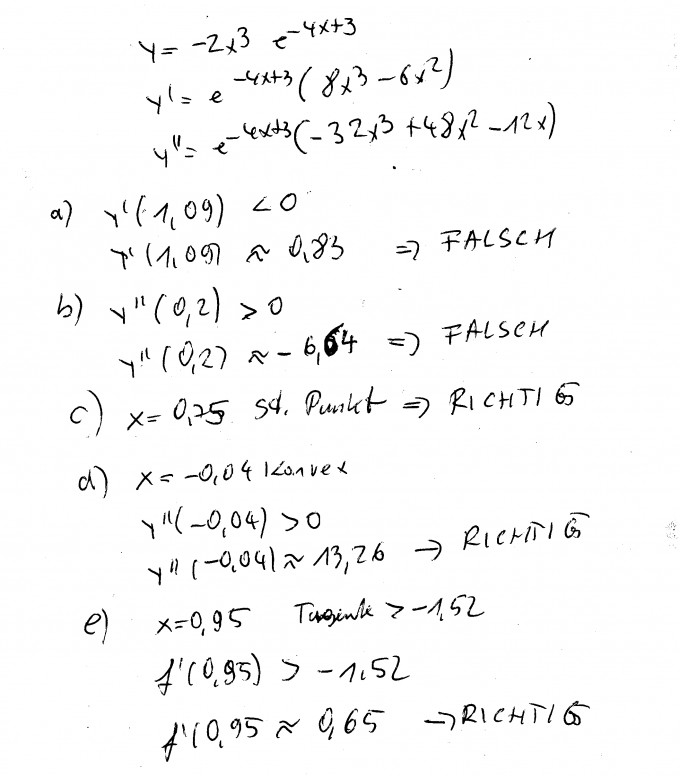 y = -2x³ e^(-4x+3)
y' = e^(-4x+3) (8x³ - 6x²)
y'' = e^(-4x+3) (-32x³ + 48x² - 12x)
a) y'(1,09) < 0
y'(1,09) ≈ 0,83 => FALSCH
b) y''(0,2) > 0
y''(0,2) ≈ -6,64 => FALSCH
c) x = 0,75 st. Punkt => RICHTIG
d) x = -0,04 Konvex
y''(-0,04) > 0
y''(-0,04) ≈ 13,26 → RICHTIG
e) x=0,95 Tangente > -1,52
f'(0,95) > -1,52
f'(0,95 ≈ 0,65 → RICHTIG